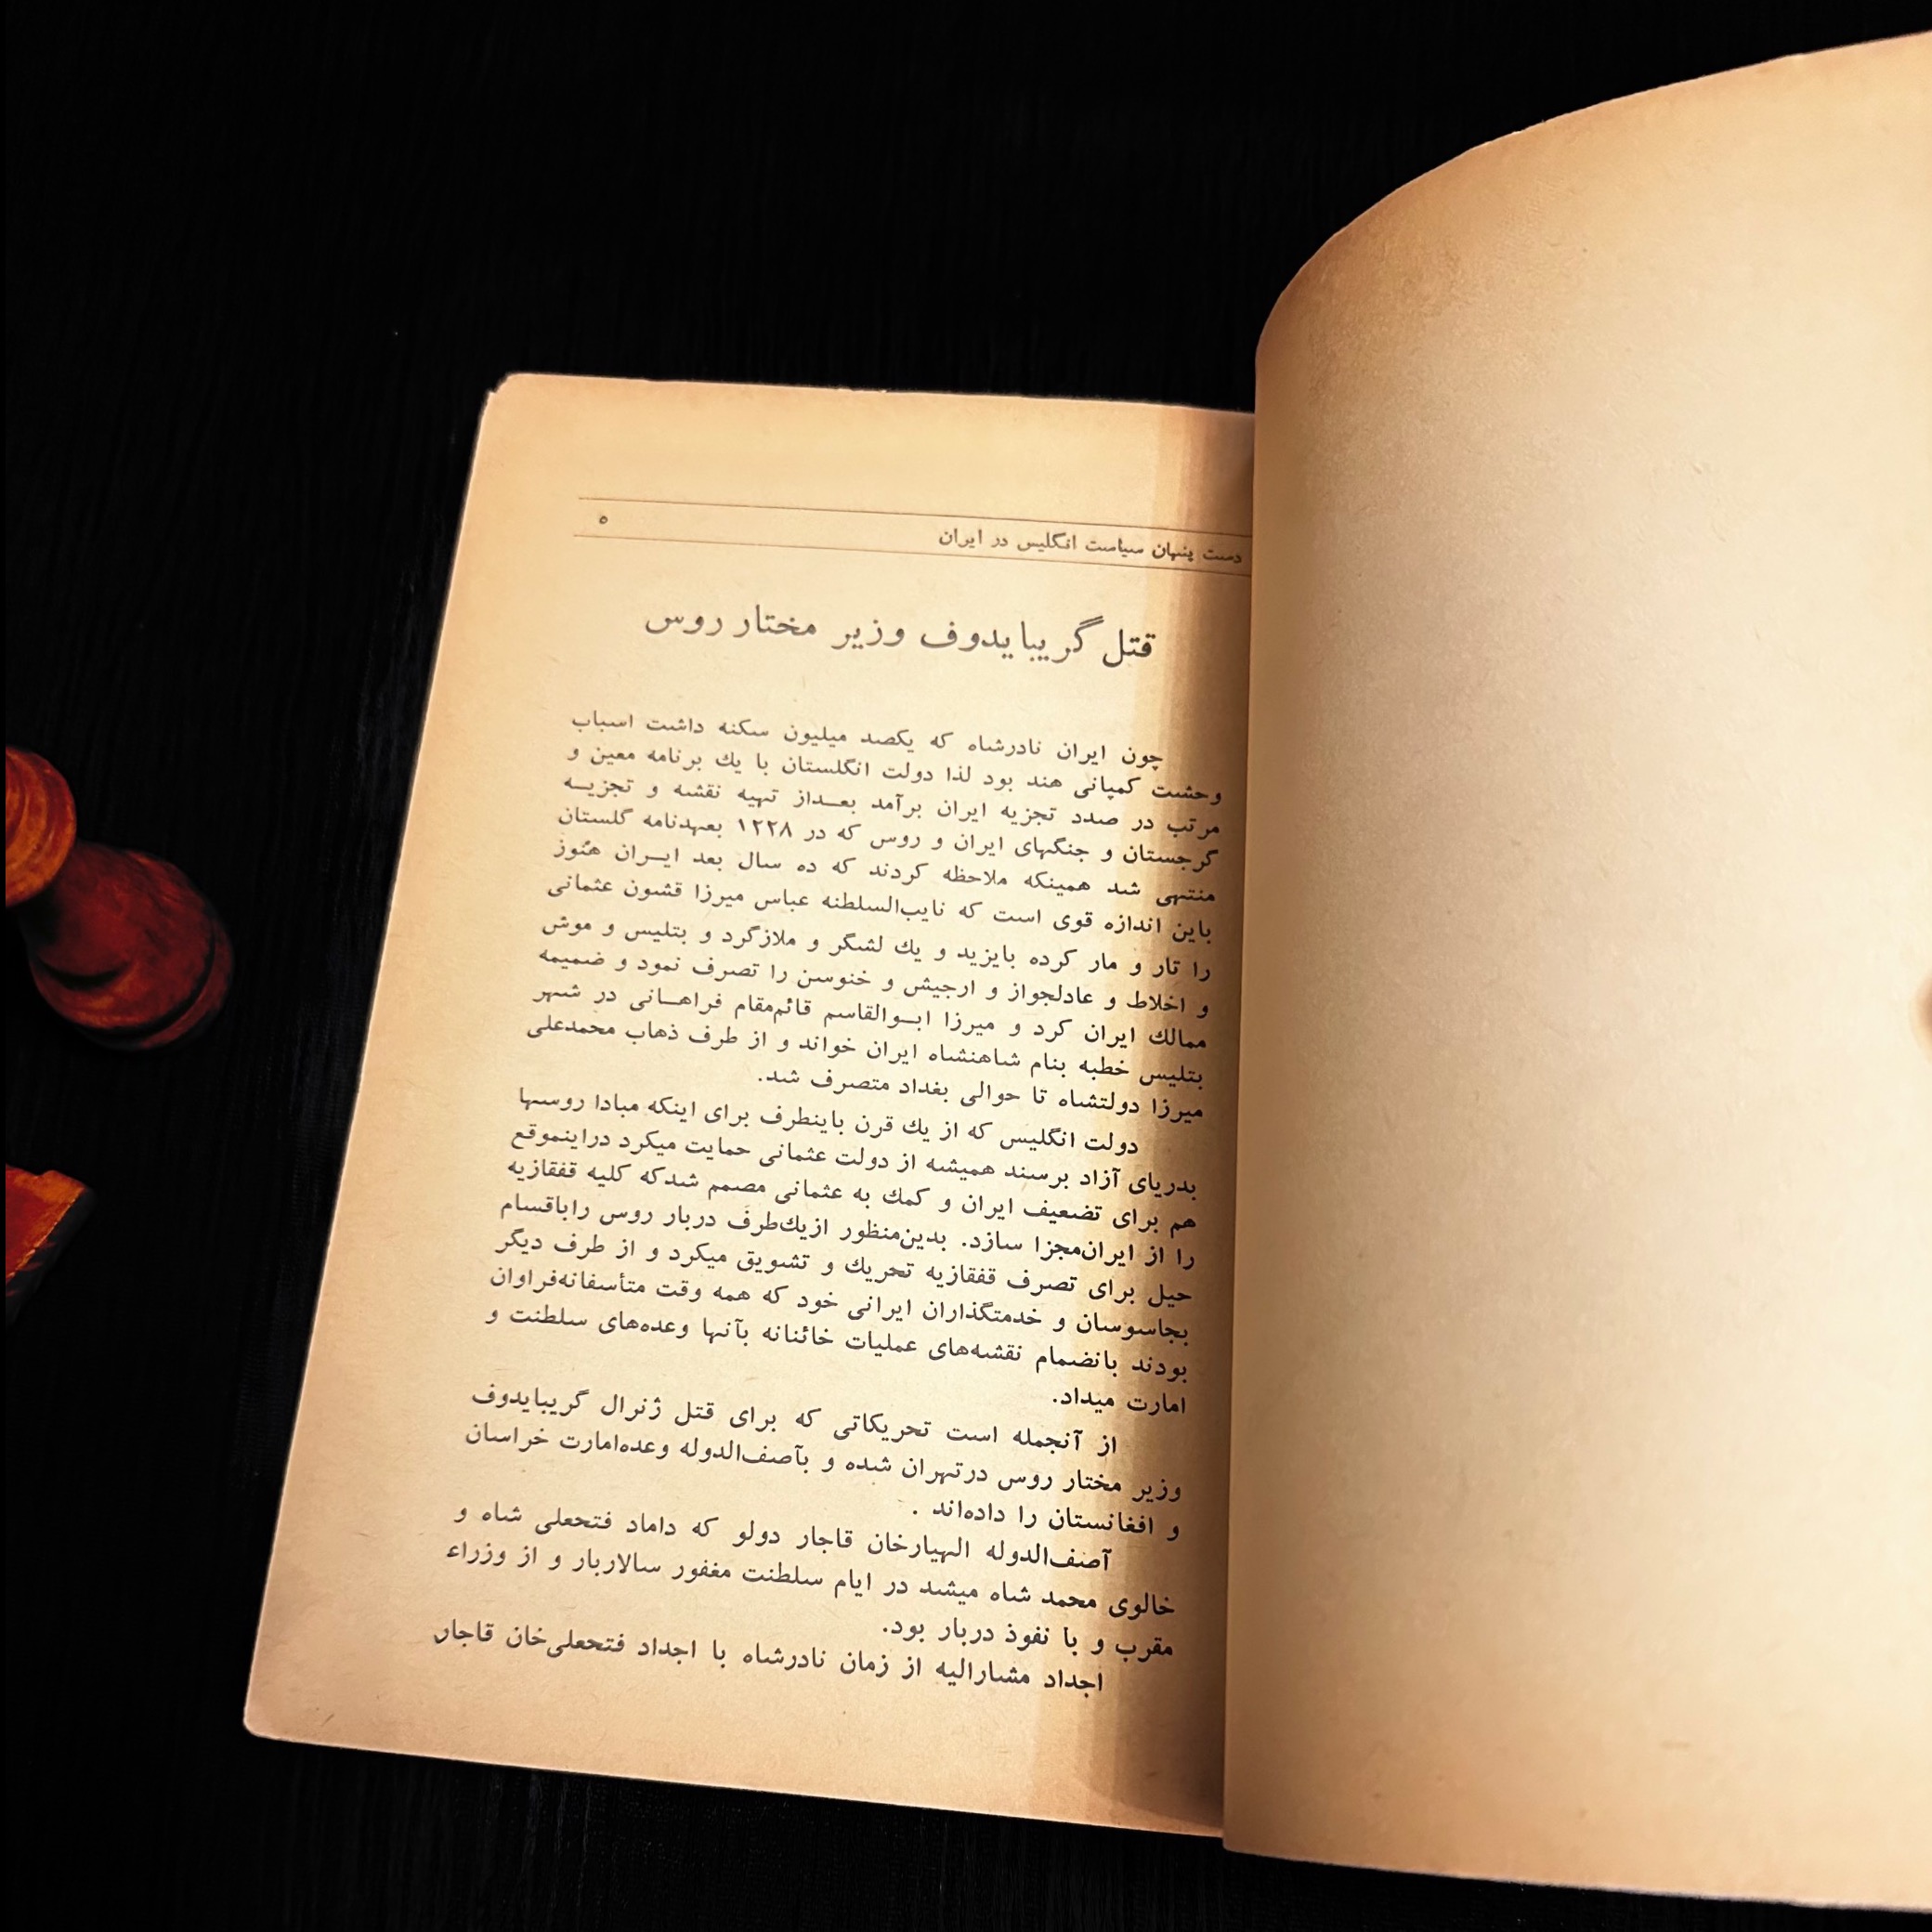 دست پنهان سیاست انگلیس در ایران ۵
قتل گریبایدوف وزیر مختار روس
چون ایران نادرشاه که یکصد میلیون سکنه داشت اسباب
وحشت کمپانی هند بود لذا دولت انگلستان با یك برنامه معین و
مرتب در صدد تجزیه ایران برآمد بعـداز تهیه نقشه و تجزیـه
گرجستان و جنگهای ایران و روس که در ۱۲۲۸ بعهدنامه گلستان
منتهی شد همینکه ملاحظه کردند که ده سال بعد ایـران هنوز
باین اندازه قوی است که نایب‌السلطنه عباس میرزا قشون عثمانی
را تار و مار کرده بایزید و یك لشگر و ملازگرد و بتلیس و موش
و اخلاط و عادلجواز و ارجیش و خنوسن را تصرف نمود و ضمیمه
ممالك ایران کرد و میرزا ابـوالقاسم قائم‌مقام فراهـانی در شهر
بتلیس خطبه بنام شاهنشاه ایران خواند و از طرف ذهاب محمدعلی
میرزا دولتشاه تا حوالی بغداد متصرف شد.
دولت انگلیس که از یك قرن باینطرف برای اینکه مبادا روسها
بدریای آزاد برسند همیشه از دولت عثمانی حمایت میکرد دراینموقع
هم برای تضعیف ایران و کمك به عثمانی مصمم شدکه کلیه قفقازیه
را از ایران‌مجزا سازد. بدین‌منظور ازیك‌طرف دربار روس راباقسام
حیل برای تصرف قفقازیه تحریك و تشویق میکرد و از طرف دیگر
بجاسوسان و خدمتگذاران ایرانی خود که همه وقت متأسفانه‌فراوان
بودند بانضمام نقشه‌های عملیات خائنانه بآنها وعده‌های سلطنت و
امارت میداد.
از آنجمله است تحریکاتی که برای قتل ژنرال گریبایدوف
وزیر مختار روس درتهران شده و بآصف‌الدوله وعده‌امارت خراسان
و افغانستان را داده‌اند .
آصف‌الدوله الهیارخان قاجار دولو که داماد فتحعلی شاه و
خالوی محمد شاه میشد در ایام سلطنت مغفور سالاربار و از وزراء
مقرب و با نفوذ دربار بود.
اجداد مشارالیه از زمان نادرشاه با اجداد فتحعلی‌خان قاجار